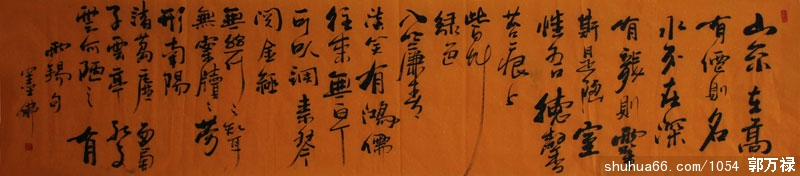 山不在高
有僊則名
水不在深
有龍則靈
斯是陋室
惟吾德馨
苔痕上
階艸
綠色
入簾青
談笑有鴻儒
往來無白丁
可以調素琴
閱金經
無絲竹之亂耳
無案牘之勞
形南陽
諸葛廬西蜀
子雲亭孔子
雲何陋之有
禹錫句
墨佛
shuhua66.com/1054 郭万禄